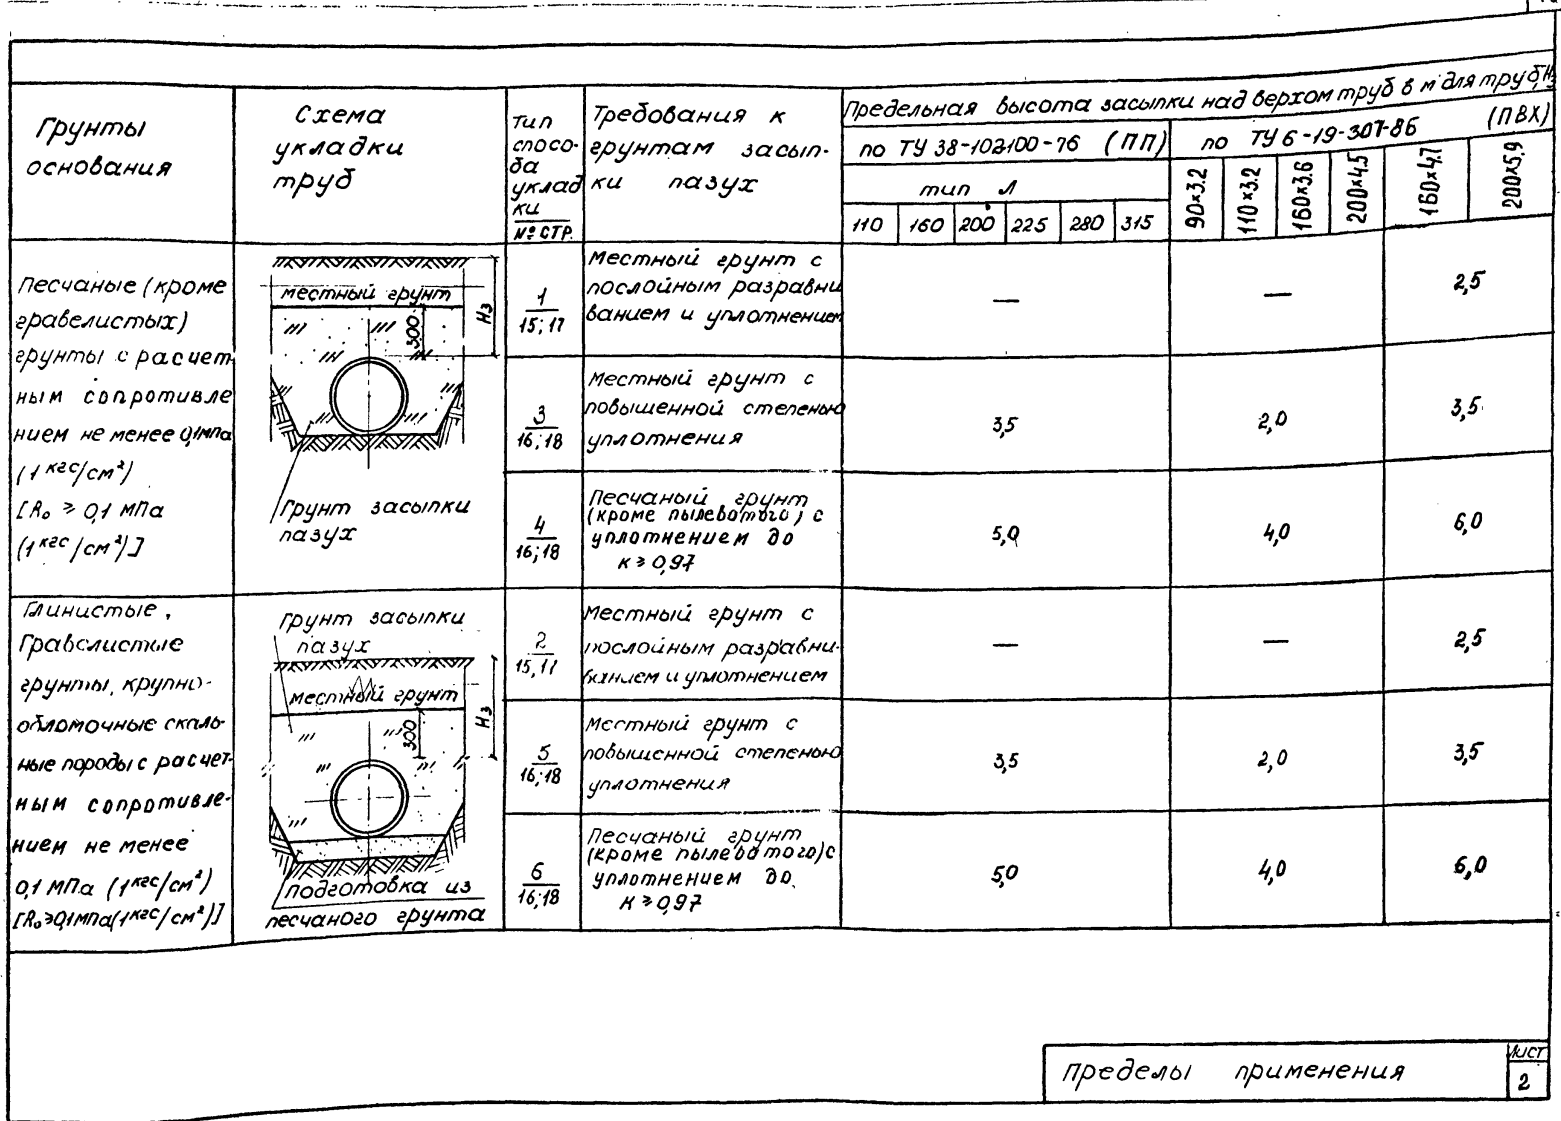 Грунты
основания
Схема
укладки
труб
Тип
спосо-
ба
уклад
ки
№ СТР.
Требования к
грунтам засып-
ки пазух
Предельная высота засыпки над верхом труб в м для труб, Нз
по ТУ 38-102100-76 (ПП)
по ТУ 6-19-307-86 (ПВХ)
тип Л
110 160 200 225 280 315
90×3.2
110×3.2
160×3.6
200×4.5
160×4.7
200×5.9
Песчаные (кроме
гравелистых)
грунты с расчет-
ным сопротивле
нием не менее 0,1МПа
(1 кгс/см²)
[R₀ ≥ 0,1 МПа
(1 кгс/см²)]
местный грунт
300
Нз
Грунт засыпки
пазух
1
15; 17
Местный грунт с
послойным разравни
ванием и уплотнением
— — 2,5
3
16; 18
Местный грунт с
повышенной степенью
уплотнения
3,5 2,0 3,5
4
16; 18
Песчаный грунт
(кроме пылеватого) с
уплотнением до
К ≥ 0,97
5,0 4,0 6,0
Глинистые,
Гравелистые
грунты, крупно-
обломочные скаль-
ные породы с расчет-
ным сопротивле-
нием не менее
0,1 МПа (1 кгс/см²)
[R₀≥0,1МПа(1 кгс/см²)]
Грунт засыпки
пазух
местный грунт
300
Нз
подготовка из
песчаного грунта
2
15, 17
Местный грунт с
послойным разравни-
ванием и уплотнением
— — 2,5
5
16; 18
Местный грунт с
повышенной степенью
уплотнения
3,5 2,0 3,5
6
16; 18
Песчаный грунт
(кроме пылеватого) с
уплотнением до
К ≥ 0,97
5,0 4,0 6,0
Пределы применения
Лист
2